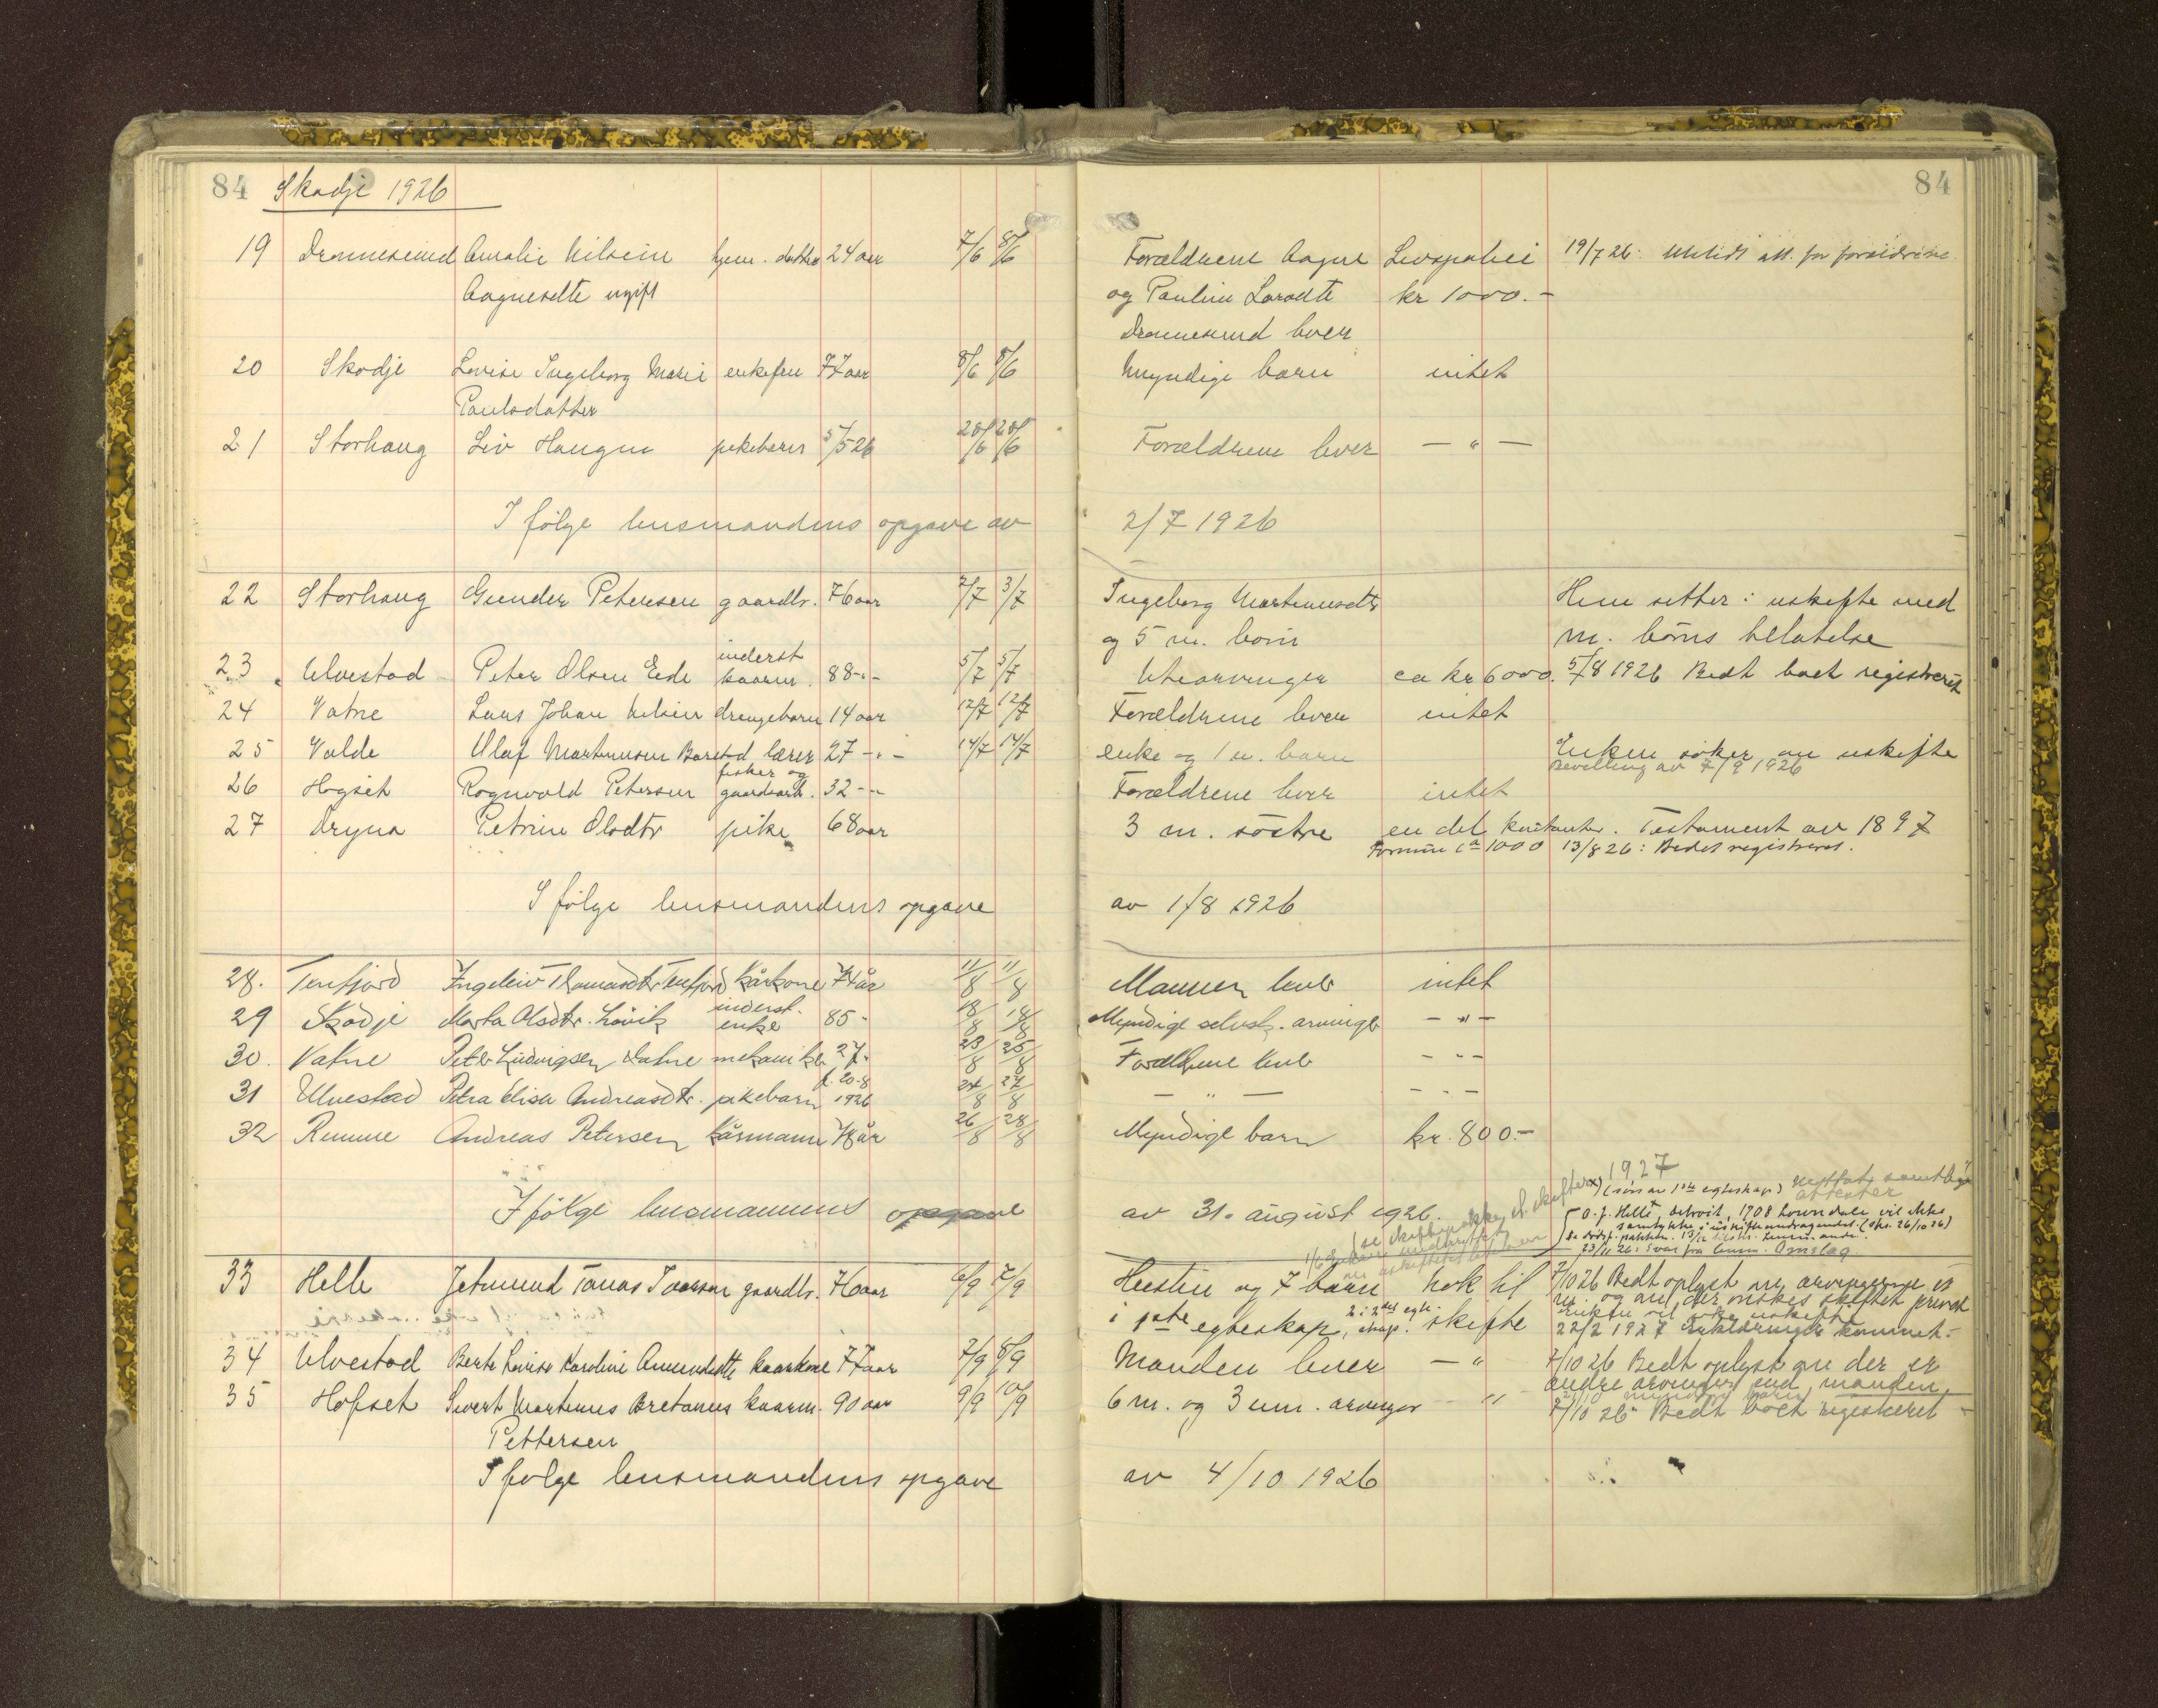 84 Skodje 1926 84
19 Dronnesund Amalie Nilsine hjem. datter 24 aar 7/6 8/6 Forældrene Aagne Livspolici 19/7 26: Utstedt att. for forældrene
Aagnesdtr ugift og Pauline Larsdtr kr 1000.-
Dronnesund lever
20 Skodje Lovise Ingeborg Marie enkefru 77 aar 8/6 8/6 Myndige barn intet
Paulsdatter
21 Storhaug Liv Haugna pikebarn 5/5 26 28/6 28/6 Forældrene lever — " —
I følge lensmandens opgave av 2/7 1926
22 Storhaug Gunder Petersen gaardbr. 76 aar 2/7 3/7 Ingeborg Martinusdtr Hun sitter i uskifte med
og 5 m. born m. børns tilladelse
inderst
23 Ulvestad Peter Olsen Eide kaarm. 88 -"- 5/7 5/7 Utearvinger ca kr 6000. 5/8 1926 Bedt boet registreret
24 Vatne Lars Johan Nilsen drengebarn 14 aar 12/7 12/7 Forældrene lever intet
25 Valde Olaf Martinusen Barstad lærer 27 -"- 14/7 14/7 enke og 1 u. barn Enken søker om uskifte
Bevilling av 7/9 1926
fisker og
26 Hogset Rognvald Petersen gaardarb. 32 -"- Forældrene lever intet
27 Dryna Petrine Olsdtr pike 68 aar 3 m. søstre en del kontanter. Testament av 1897
Formue ca 1000 13/8 26: Bedt registreret.
I følge lensmandens opgave av 1/8 1926
28. Tenfjord Ingeleiv Thomasdtr Tenfjord kårkone 77 år 11/8 11/8 Mannen lever intet
inderst.
29 Skodje Marta Olsdtr. Løvik enke 85 - 18/8 18/8 Myndige selvsk. arvinger — " —
30. Vatne Peter Ludvigsen Vatne mekaniker 27 - 23/8 25/8 Foreldrene lever — " —
f. 20-8
31 Ulvestad Petra Elisa Andreasdtr. pikebarn 1926 24/8 27/8 — " — — " —
32 Remme Andreas Petersen kårmann 78 år 26/8 28/8 Myndige barn kr. 800.-
1927
I følge lensmannens opgave av 31. august 1926.
(søn av 1ste egteskap)
O. J. Helle, Detroit, 1708 Lownsdale vil ikke
samtykke i uskifteandragendet. (skr. 26/10 26)
23/11 26: Svar fra lensm. Omslag.
33 Helle Jetmund Tomas Ivarsen gaardbr. 76 aar 6/9 7/9 Hustru og 7 barn nok til 7/10 26 Bedt oplyst om arvingerne er
m. og om der ønskes skiftet privat
i 1ste egteskap, 2 i 2det egteskap. skifte
22/2 1927 Erklæringer kommet.-
34 Ulvestad Berte Lovise Karoline Amundsdtr kaarkone 77 aar 7/9 8/9 Manden lever — " 7/10 26 Bedt oplyst om der er
andre arvinger end manden
35 Hofset Sivert Martinus Bretanus kaarm. 90 aar 9/9 10/9 6 m. og 3 um. arvinger — " 7/10 26 Bedt boet registreret
Pettersen
I følge lensmandens opgave av 4/10 1926